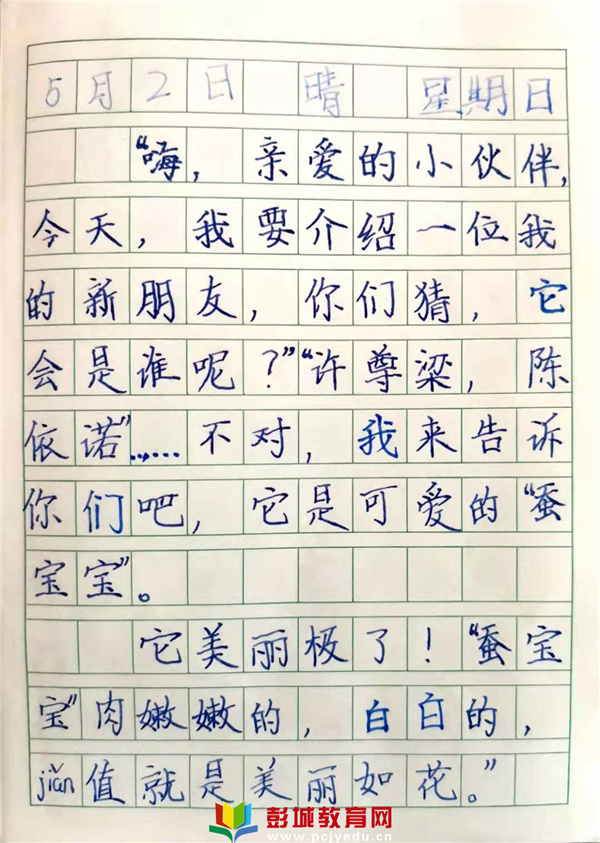 5月2日 晴 星期日
“嗨，亲爱的小伙伴，
今天，我要介绍一位我
的新朋友，你们猜，它
会是谁呢？”“许尊梁，陈
依诺”……不对，我来告诉
你们吧，它是可爱的“蚕
宝宝”。
它美丽极了！“蚕宝
宝”肉嫩嫩的，白白的，
jiǎn值就是美丽如花。”
彭城教育网
www.pcjyedu.cn